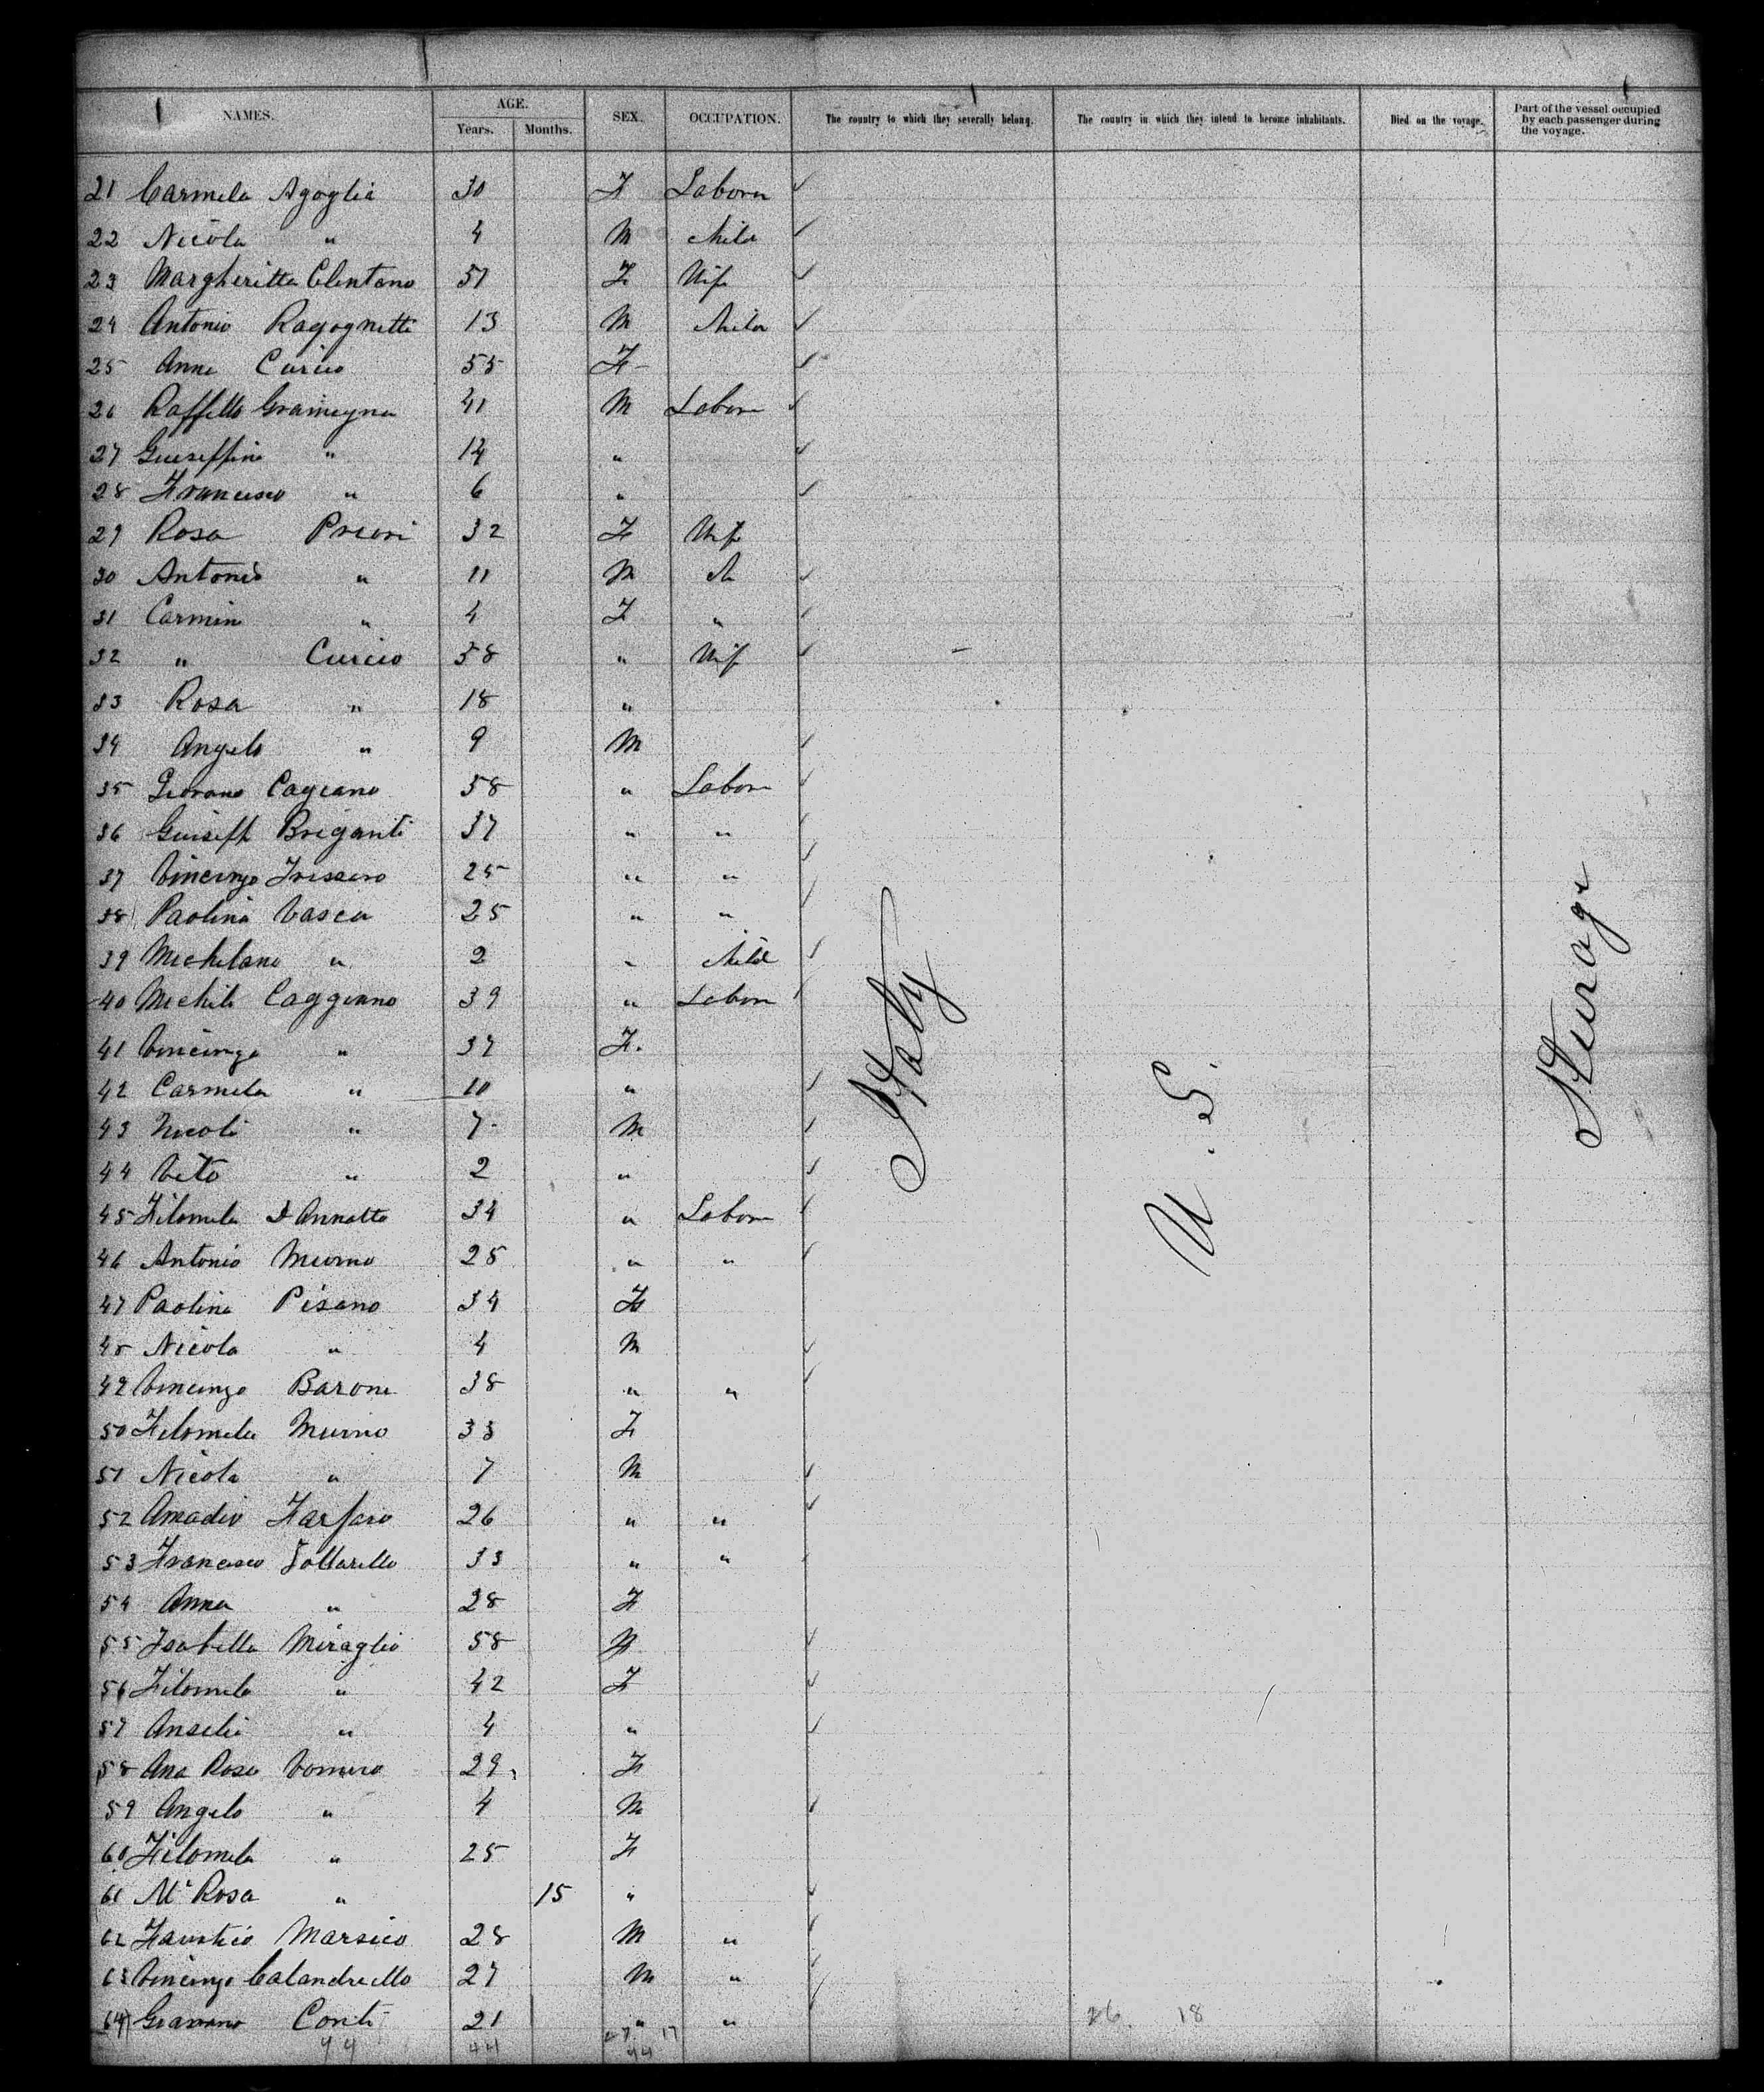 NAMES. AGE. SEX. OCCUPATION. The country to which they severally belong. The country in which they intend to become inhabitants. Died on the voyage. Part of the vessel occupied by each passenger during the voyage.
Years. Months.
21 Carmela Agoglia 30 F Labora
22 Nicola " 4 M Child
23 Margheritta Clentano 51 F Wife
24 Antonio Ragognetti 13 M Child
25 Anna Curcio 55 F
26 Raffello Gramegna 41 M Labor
27 Guiseffino " 14 "
28 Francisco " 6 "
29 Rosa Priori 32 F Wife
30 Antonio " 11 M Ch
31 Carmin " 4 F "
32 " Curcio 38 " Wif
33 Rosa " 18 "
34 Angelo " 9 M
35 Giovano Cagiano 58 " Labor
36 Guiseff Briganti 37 " "
37 Vincenzo 25 " "
38 Paolina Vasca 25 " "
39 Michelano " 2 " Child
40 Michele Caggiano 39 " Labor
41 Vincenza " 37 F.
42 Carmela " 10 "
43 Nicoli " 7 M
44 Vito " 2 "
45 Filomela D Annatto 34 " Labor
46 Antonio Murno 28 " "
47 Paolina Pisano 34 F
48 Nicola " 4 M
49 Vincenzo Barone 38 " "
50 Filomela Murno 33 F
51 Nicola " 7 M
52 Amadio Farfaro 26 " "
53 Francisco 33 " "
54 Anna " 28 F
55 Isabella Miraglio 58
56 Filomela " 42 F
57 Anselia " 4 "
58 Ana Rosa Vomero 29 F
59 Angelo " 4 M
60 Filomela " 25 F
61 Ma Rosa " 15 "
62 Faustio Marsico 28 M "
63 Vincenzo Calandriello 27 M "
64 Giavano Conti 21 " "
Italy
U. S.
Steerage
26 18
44 44 27 17
44